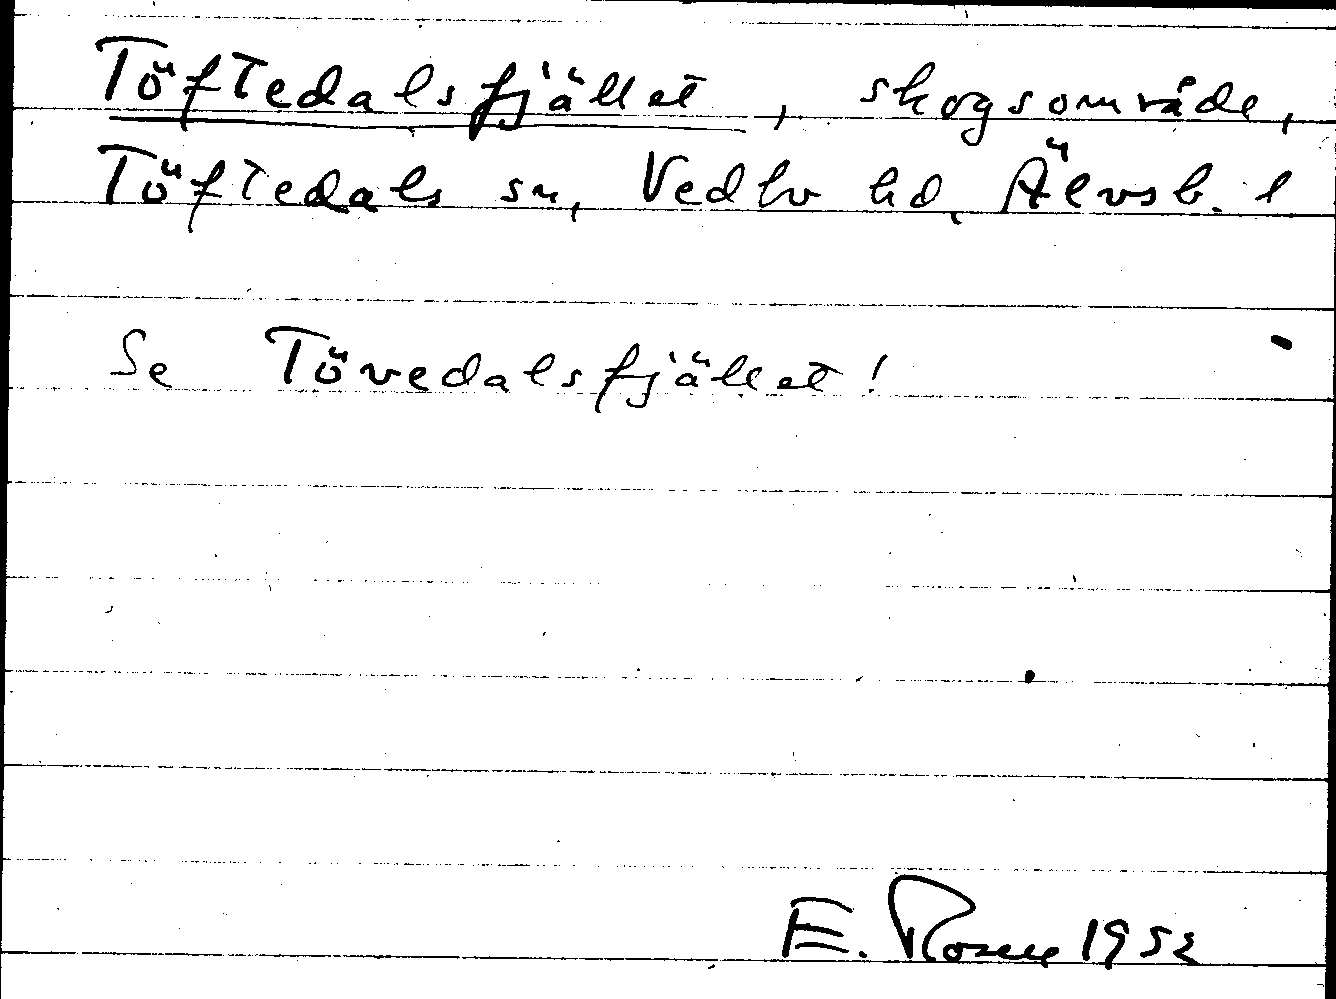 Töftedalsfjället, skogsområde,
Töftedals sn, Vedbo hd, Älvsb. l
Se Tövedalsfjället!
E. Rosen 1952